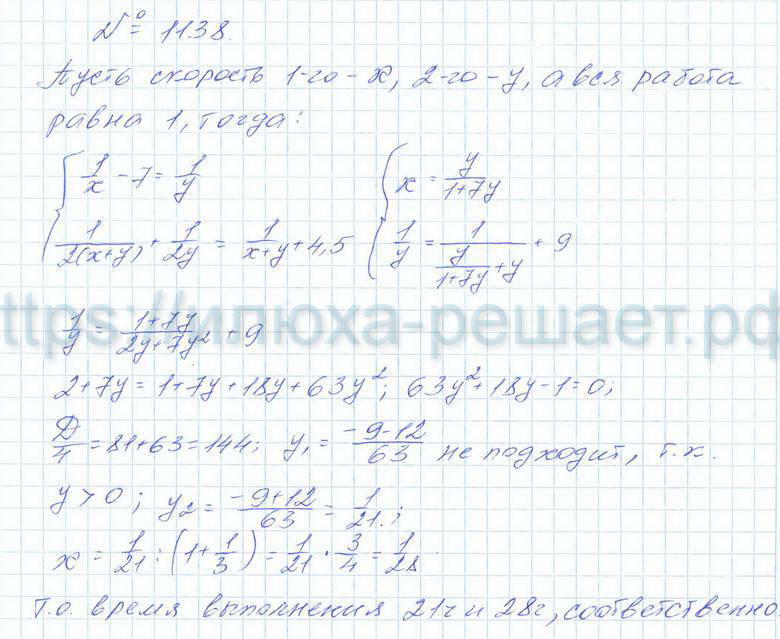 № 1138.
Пусть скорость 1-го - x, 2-го - y, а вся работа
равна 1, тогда:
{ 1/x - 7 = 1/y { x = y/(1+7y)
{ 1/(2(x+y)) + 1/(2y) = 1/(x+y) + 4,5 { 1/y = 1/(y/(1+7y) + y) + 9
ttps://илюха-решает.рф
1/y = (1+7y)/(2y+7y²) + 9
2+7y = 1+7y+18y+63y²; 63y²+18y-1=0;
Д/4 = 81+63 = 144; y₁ = (-9-12)/63 не подходит, т.к.
y > 0; y₂ = (-9+12)/63 = 1/21.;
x = 1/21 : (1+1/3) = 1/21 · 3/4 = 1/28
Т.о. время выполнения 21ч и 28ч, соответственно